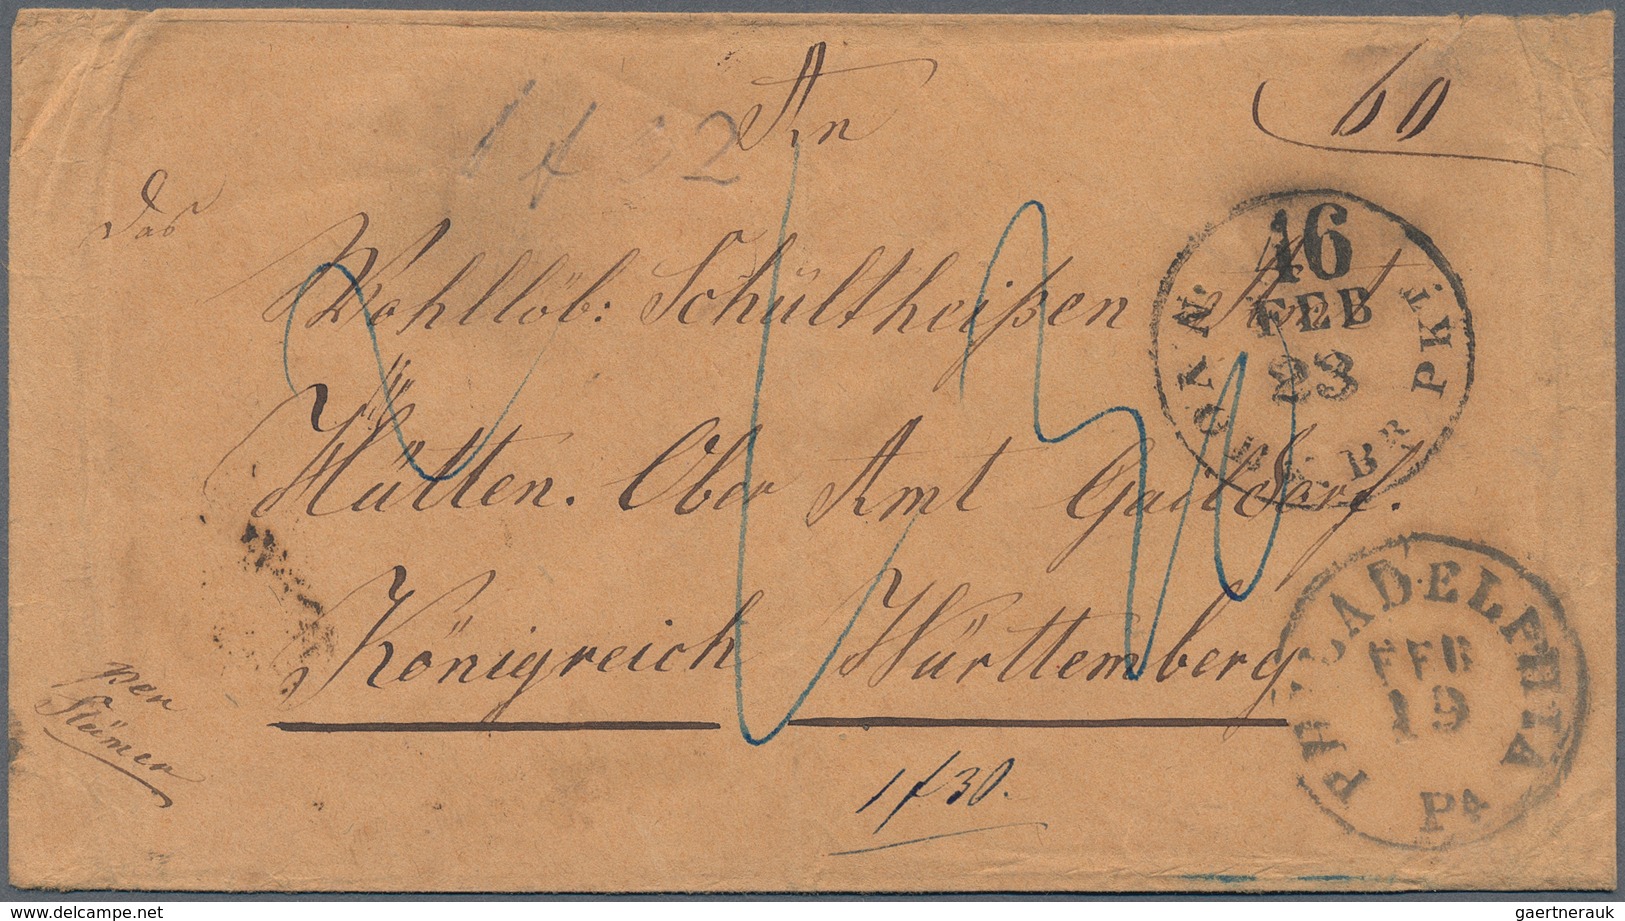 An
60
1 f 32
Das
Wohllöb: Schültheißen Amt
Hütten. Ober Amt Gaildorf.
Königreich Württemberg
per
Steümer
1 f 30.
16
FEB
23
AM. PKT.
PHILADELPHIA
FEB
19
Pa
www.delcampe.net
gaertnerauk